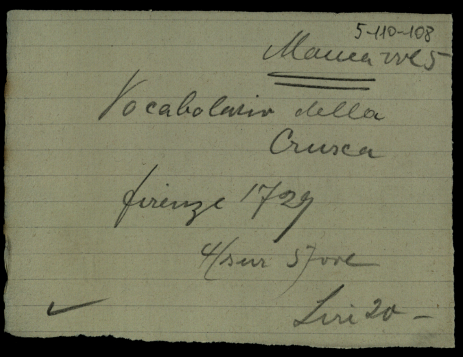 5-110-108
Manca vol 5
Vocabolario della
Crusca
firenze 1729
4/sur 5/vol
Lire 20 —